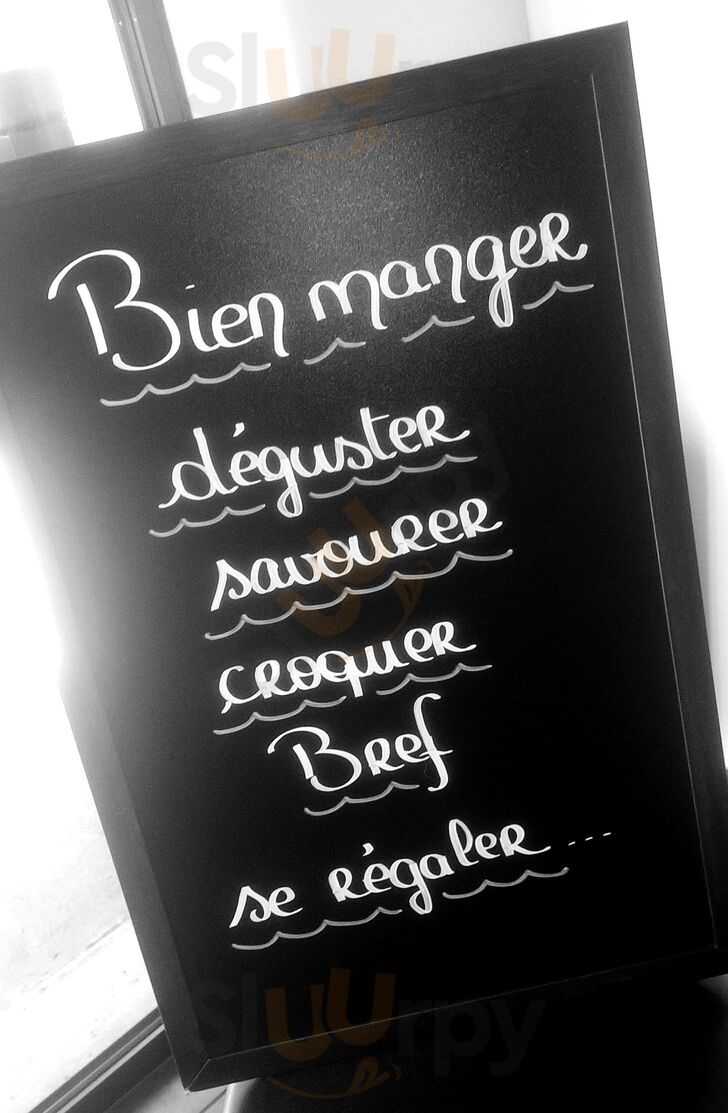 Sluurpy
Bien manger
déguster
savourer
croquer
Bref
se régaler ...
Sluurpy